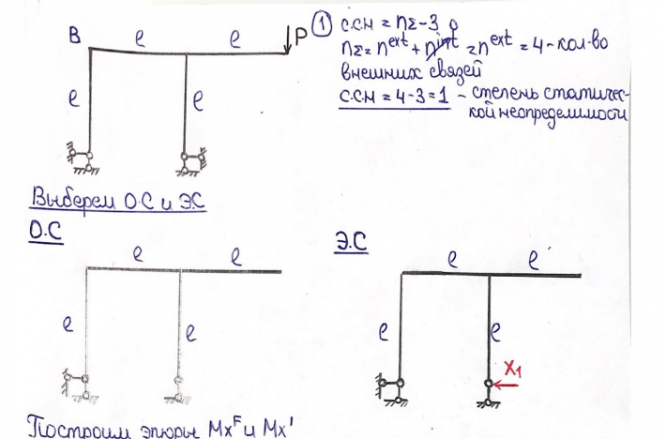 B
e
e
P
e
e
① с.с.н = nΣ-3
0
nΣ = n^ext + n^int = n^ext = 4 - кол.во
внешних связей
с.с.н = 4-3=1 - степень статичес-
кой неопределимости
Выберем О.С и Э.С
О.С
e
e
e
e
Э.С
e
e
e
e
X₁
Построим эпюры Mx^F и Mx^1